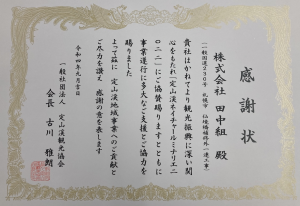 感謝状
(一般国道230号 札幌市 仙境橋補修外一連工事)
株式会社 田中組 殿
貴社はかねてより観光振興に深い関
心をもたれ「定山渓ネイチャールミナリエ二
〇二二」にご協賛賜りますとともに
事業運行に多大なご支援とご協力を
賜りました
よって茲に 定山渓地域事業へのご貢献と
ご尽力を讃え 感謝の意を表します
令和四年元月吉日
一般社団法人 定山渓観光協会
会長 古川 雅朗